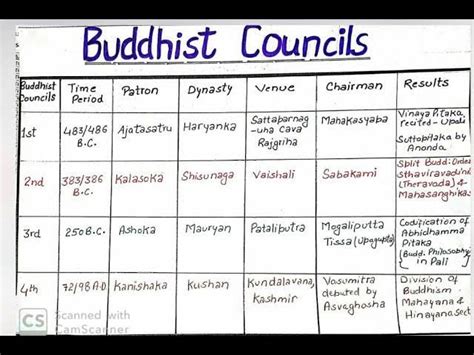 Buddhist Councils
Buddhist Councils | Time Period | Patron | Dynasty | Venue | Chairman | Results
1st | 483/486 B.C. | Ajatasatru | Haryanka | Sattaparnag-uha Cava Rajgriha | Mahakasyaba | Vinaya Pitaka, recited - Upali Suttapitaka by Ananda
2nd | 383/386 B.C. | Kalasoka | Shisunaga | Vaishali | Sabakami | Split Budd. Order Sthaviravadins (Theravada) & Mahasanghikas
3rd | 250 B.C. | Ashoka | Mauryan | Pataliputra | Mogaliputta Tissa (Upagupta) | Codification of Abhidhamma Pitaka (Budd. Philosophy in Pali)
4th | 72/98 A.D. | Kanishaka | Kushan | Kundalavana, Kashmir | Vosumitra debuted by Asvaghosha | Division of Buddhism Mahayana & Hinayana Sect
CS Scanned with CamScanner